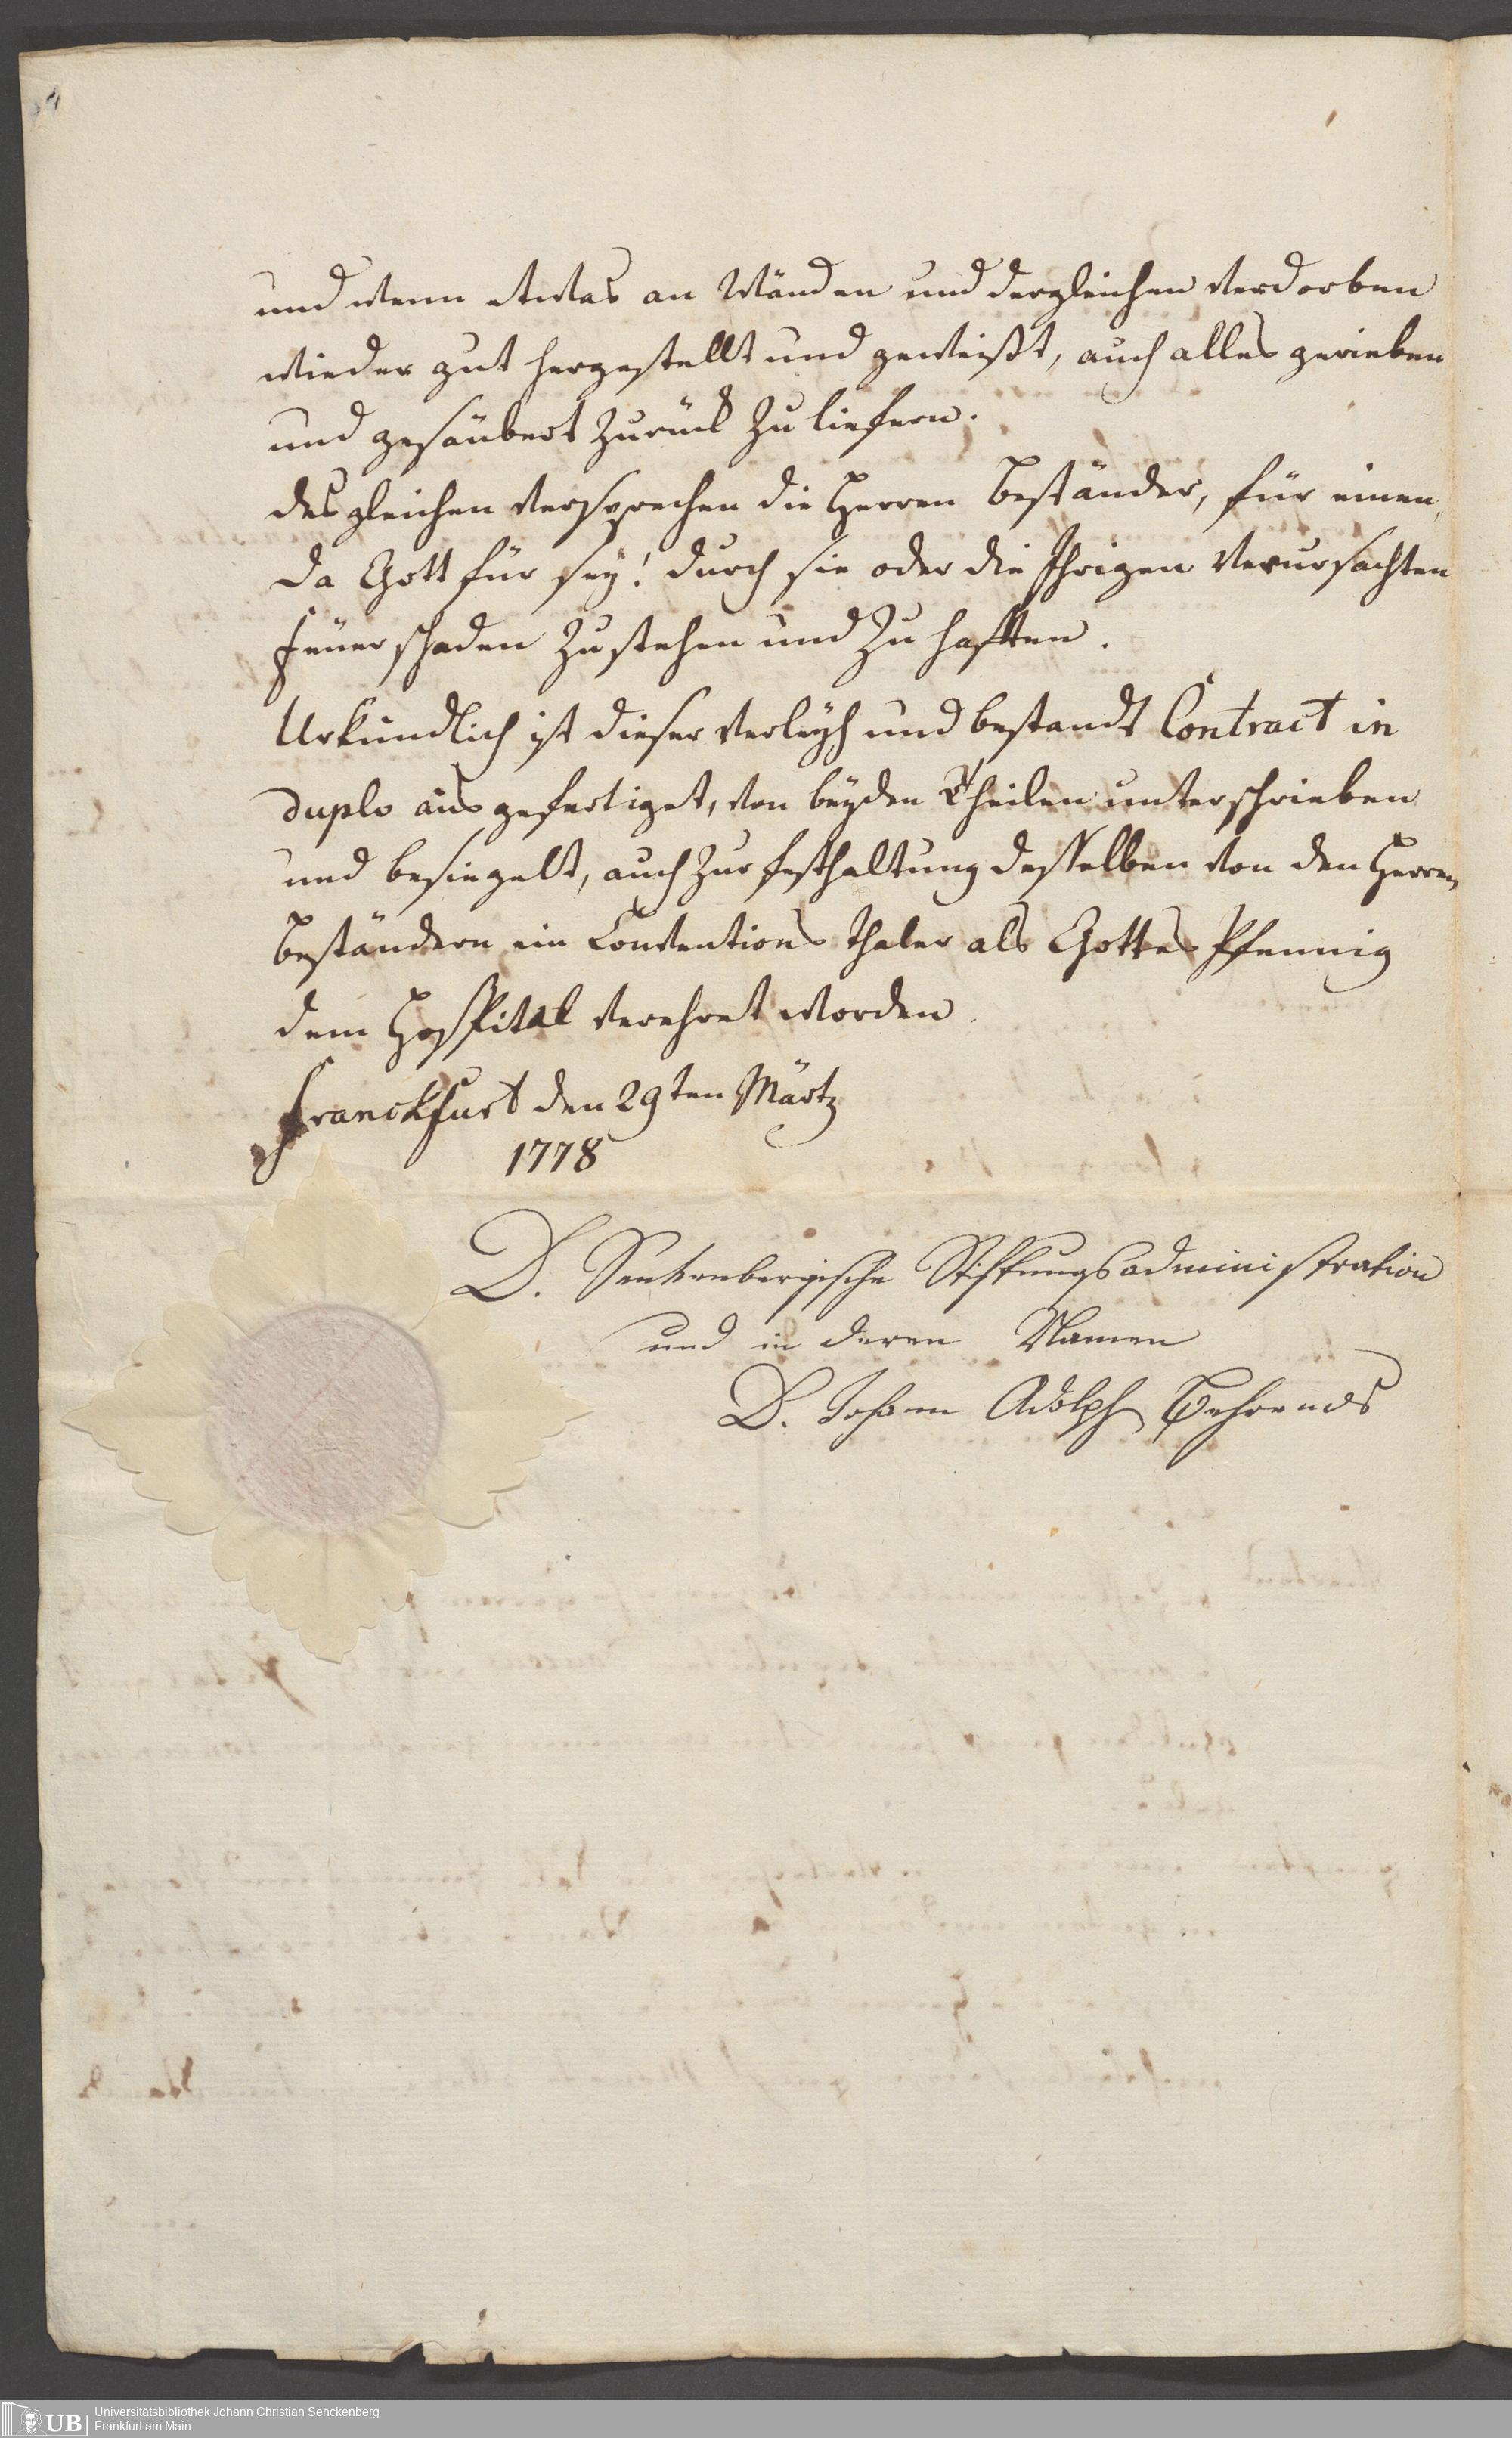 und wenn etwas an Wänden und dergleichen verdorben
wieder gut hergestellt und geweißt, auch alles gerieben
und gesäubert zurück zu liefern.
desgleichen versprechen die Herren Beständer, für einen,
da Gott für sey! durch sie oder die Ihrigen verursachten
Feuerschaden zu stehen und zu hafften.
Urkundlich ist dieser Verleyh und bestandt Contract in
duplo ausgefertiget, von beyden Theilen unterschrieben
und besiegelt, auch zur festhaltung desselben von den Herren
Beständern ein Conventions Thaler als Gottes Pfennig
dem Hospital verehret worden.
Franckfurt den 29ten Märtz
1778
D. Senkenbergische Stiftungsadministration
und in deren Namen
D. Johann Adolph Behrends
UB
Universitätsbibliothek Johann Christian Senckenberg
Frankfurt am Main